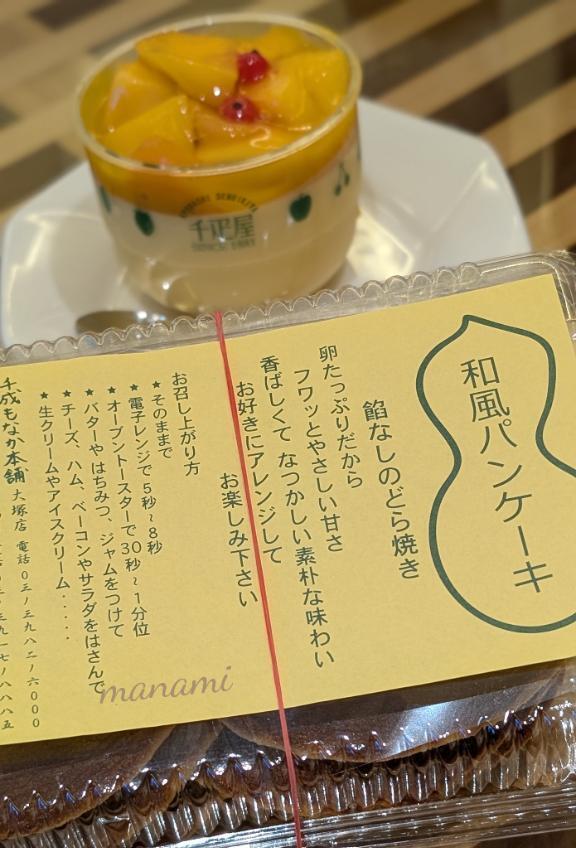 千疋屋
和風パンケーキ
餡なしのどら焼き
卵たっぷりだから
フワッとやさしい甘さ
香ばしくて なつかしい素朴な味わい
お好きにアレンジして
お楽しみ下さい
お召し上がり方
★そのままで
★電子レンジで 5秒~8秒
★オーブントースターで30秒~1分位
★バターや はちみつ、ジャムをつけて
★チーズ、ハム、ベーコンやサラダをはさんで
★生クリームやアイスクリーム・・・・
千成もなか本舗 大塚店 電話 03ノ3982ノ6000
manami